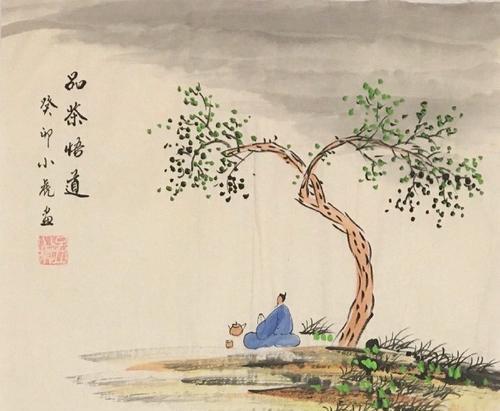 品茶悟道
癸卯小亮画